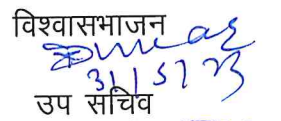 विश्वासभाजन
31/5/23
उप सचिव